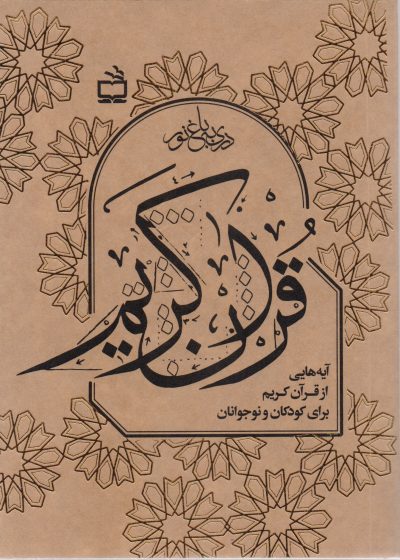 دری به باغ نور
قرآن کریم
آیه‌هایی
از قرآن کریم
برای کودکان و نوجوانان